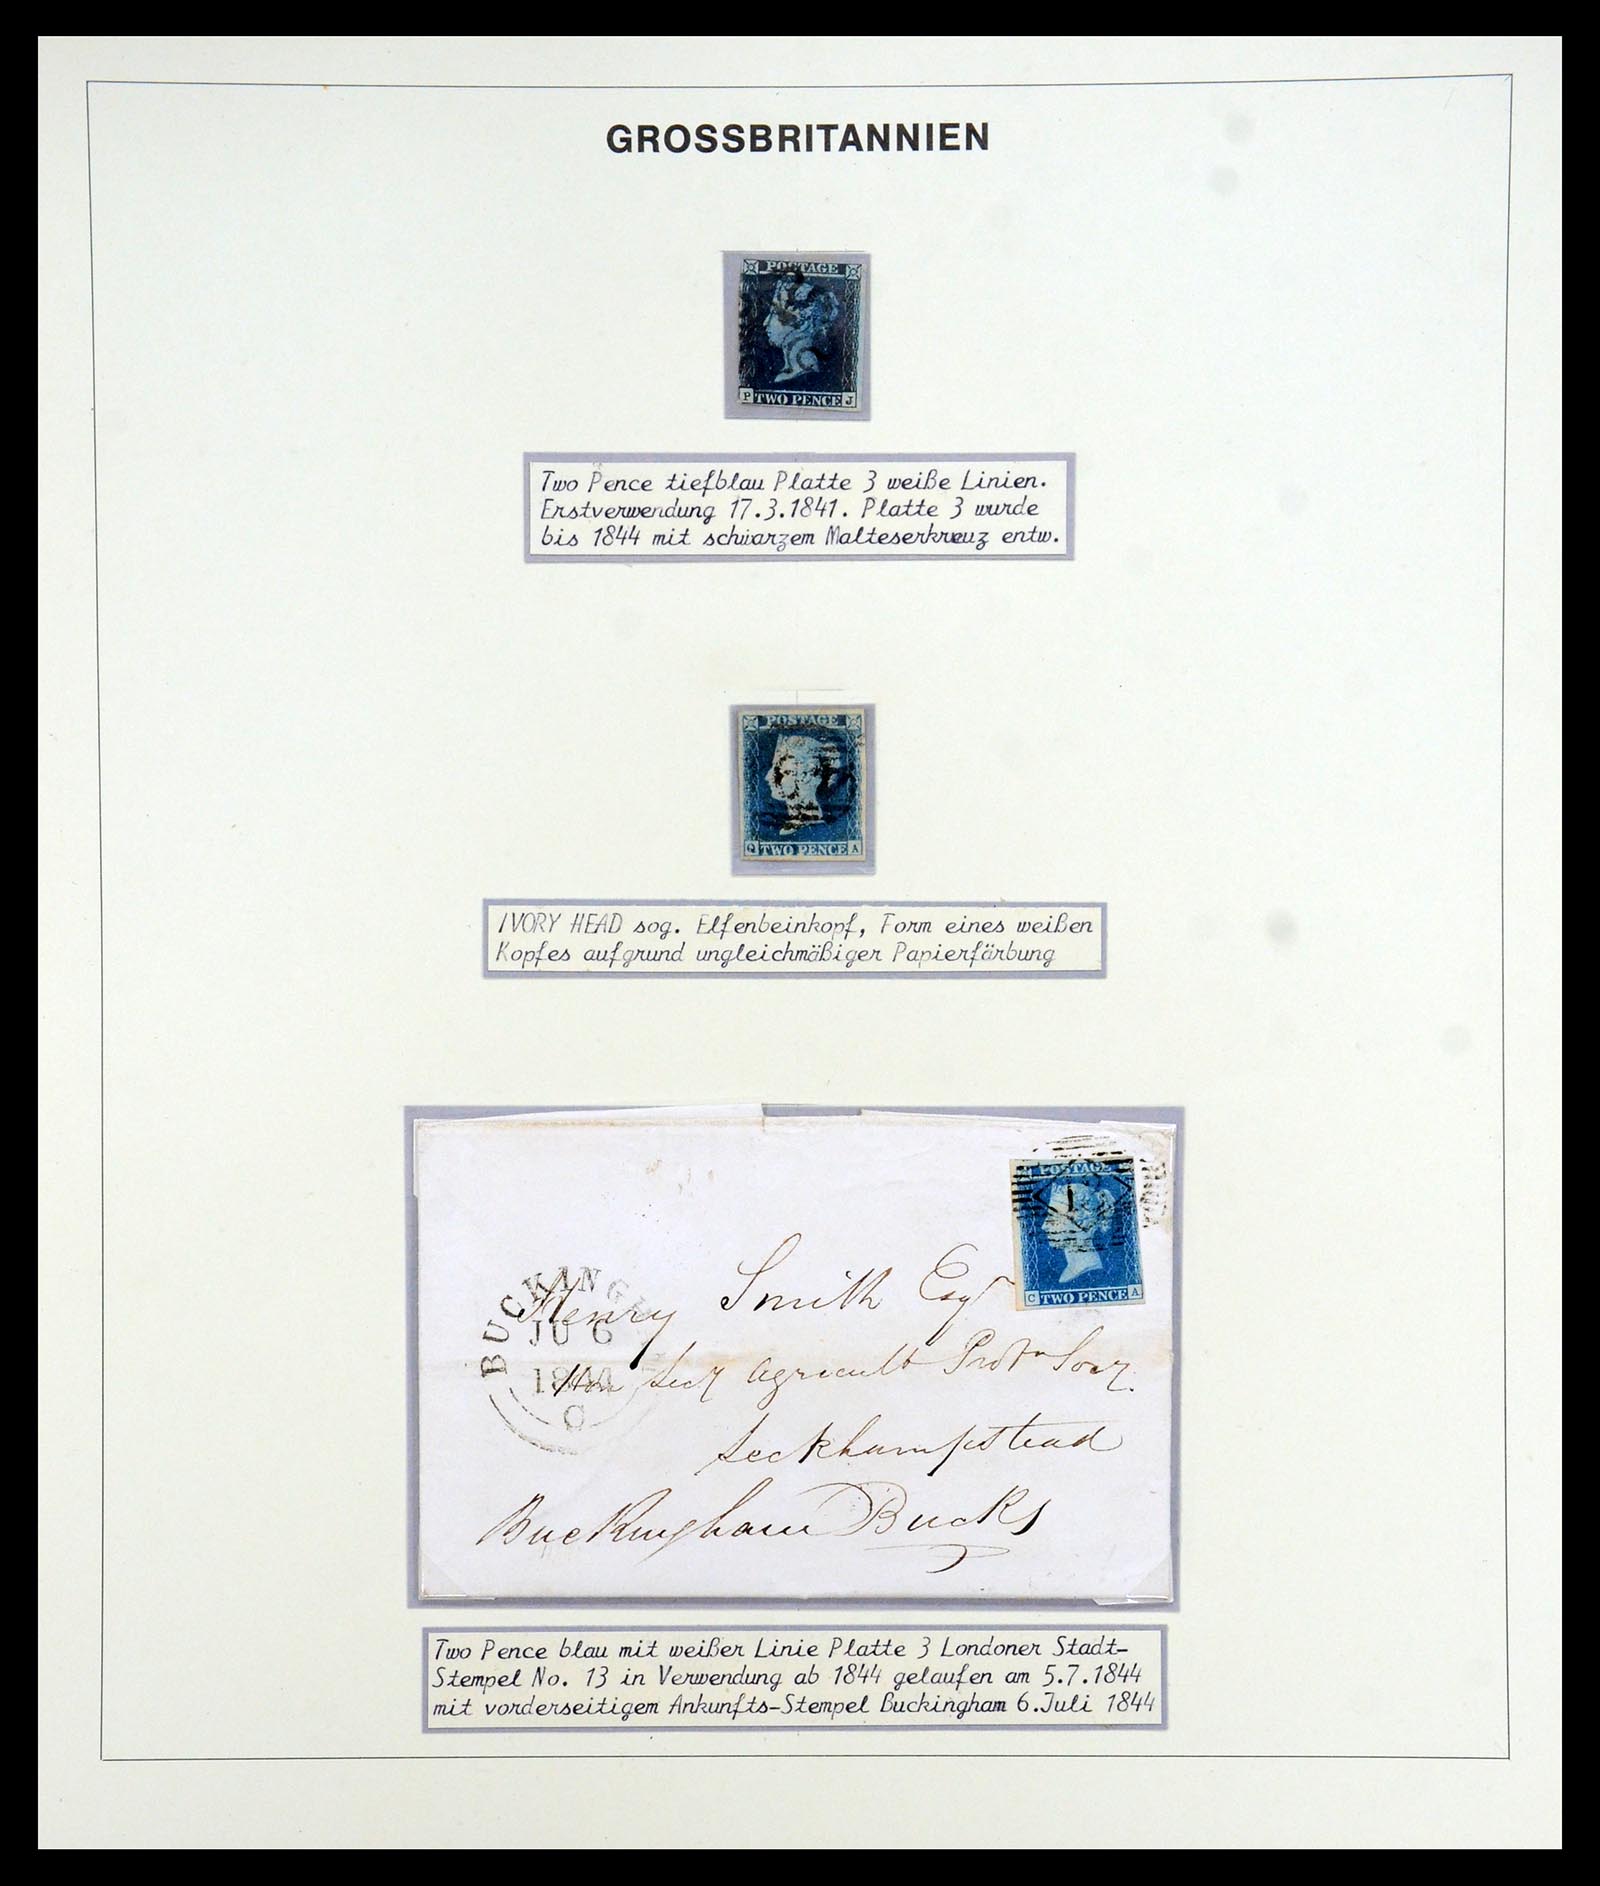 GROSSBRITANNIEN
POSTAGE
P TWO PENCE J
Two Pence tiefblau Platte 3 weiße Linien.
Erstverwendung 17.3.1841. Platte 3 wurde
bis 1844 mit schwarzem Malteserkreuz entw.
POSTAGE
Q TWO PENCE A
IVORY HEAD sog. Elfenbeinkopf, Form eines weißen
Kopfes aufgrund ungleichmäßiger Papierfärbung
POSTAGE
13
C TWO PENCE A
BUCKINGH
JU 6
1844
C
Henry Smith Esqr
Hon Secy Agricult Protn Socy.
Leckhampstead
Buckingham Bucks
Two Pence blau mit weißer Linie Platte 3 Londoner Stadt-
Stempel No. 13 in Verwendung ab 1844 gelaufen am 5.7.1844
mit vorderseitigem Ankunfts-Stempel Buckingham 6.Juli 1844